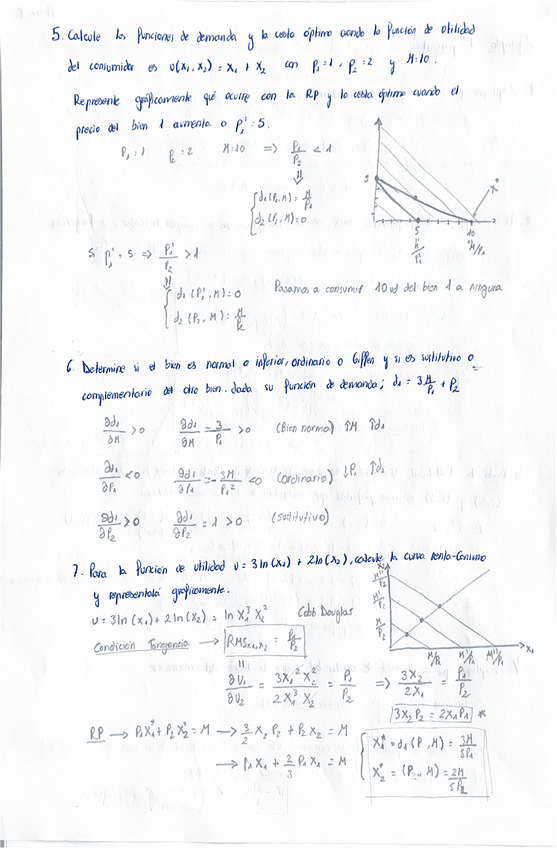 5. Calcule las funciones de demanda y la cesta óptimo cuando la función de utilidad
del consumidor es u(x₁, x₂) = x₁ + x₂ con p₁=1, p₂=2 y M=10.
Represente gráficamente qué ocurre con la RP y la cesta óptimo cuando el
precio del bien 1 aumenta a p₁' = 5.
P₁=1 P₂=2 M=10 => P₁/P₂ < 1
d₁(P₁,M) = M/P₁
d₂(P₂,M) = 0
5
5
10
M/P₁'
M/P₁
x*
Si p₁' = 5 => P₁'/P₂ > 1
d₁(P₁', M) = 0
d₂(P₂, M) = M/P₂
Pasamos a consumir 10 ud del bien 1 a ninguna
6. Determine si el bien es normal o inferior, ordinario o Giffen y si es sustitutivo o
complementario del otro bien. dada su función de demanda; d₁ = 3M/P₁ + P₂
∂d₁/∂M > 0 ∂d₁/∂M = 3/P₁ > 0 (Bien normal) ↑M ↑d₁
∂d₁/∂P₁ < 0 ∂d₁/∂P₁ = -3M/P₁² < 0 (ordinario) ↓P₁ ↑d₁
∂d₁/∂P₂ > 0 ∂d₁/∂P₂ = 1 > 0 (sustitutivo)
7. Para la función de utilidad u = 3 ln(x₁) + 2 ln(x₂), calcule la curva renta-consumo
y represéntala gráficamente.
u = 3 ln(x₁) + 2 ln(x₂) = ln x₁³ x₂² Cobb Douglas
Condición Tangencia → RMSx₁,x₂ = P₁/P₂
x₂
M''/P₂
M'/P₂
M/P₂
M/P₁ M'/P₁ M''/P₁ x₁
∂U₁/∂U₂ = 3x₁² x₂²/2x₁³ x₂ = P₁/P₂ => 3x₂/2x₁ = P₁/P₂
3x₂P₂ = 2x₁P₁ *
RP → P₁x₁* + P₂x₂* = M → 3/2 x₂ P₂ + P₂ x₂ = M
→ P₁ x₁ + 2/3 P₁ x₁ = M
x₁* = d₁(P₁, M) = 3M/5P₁
x₂* = (P₂, M) = 2M/5P₂